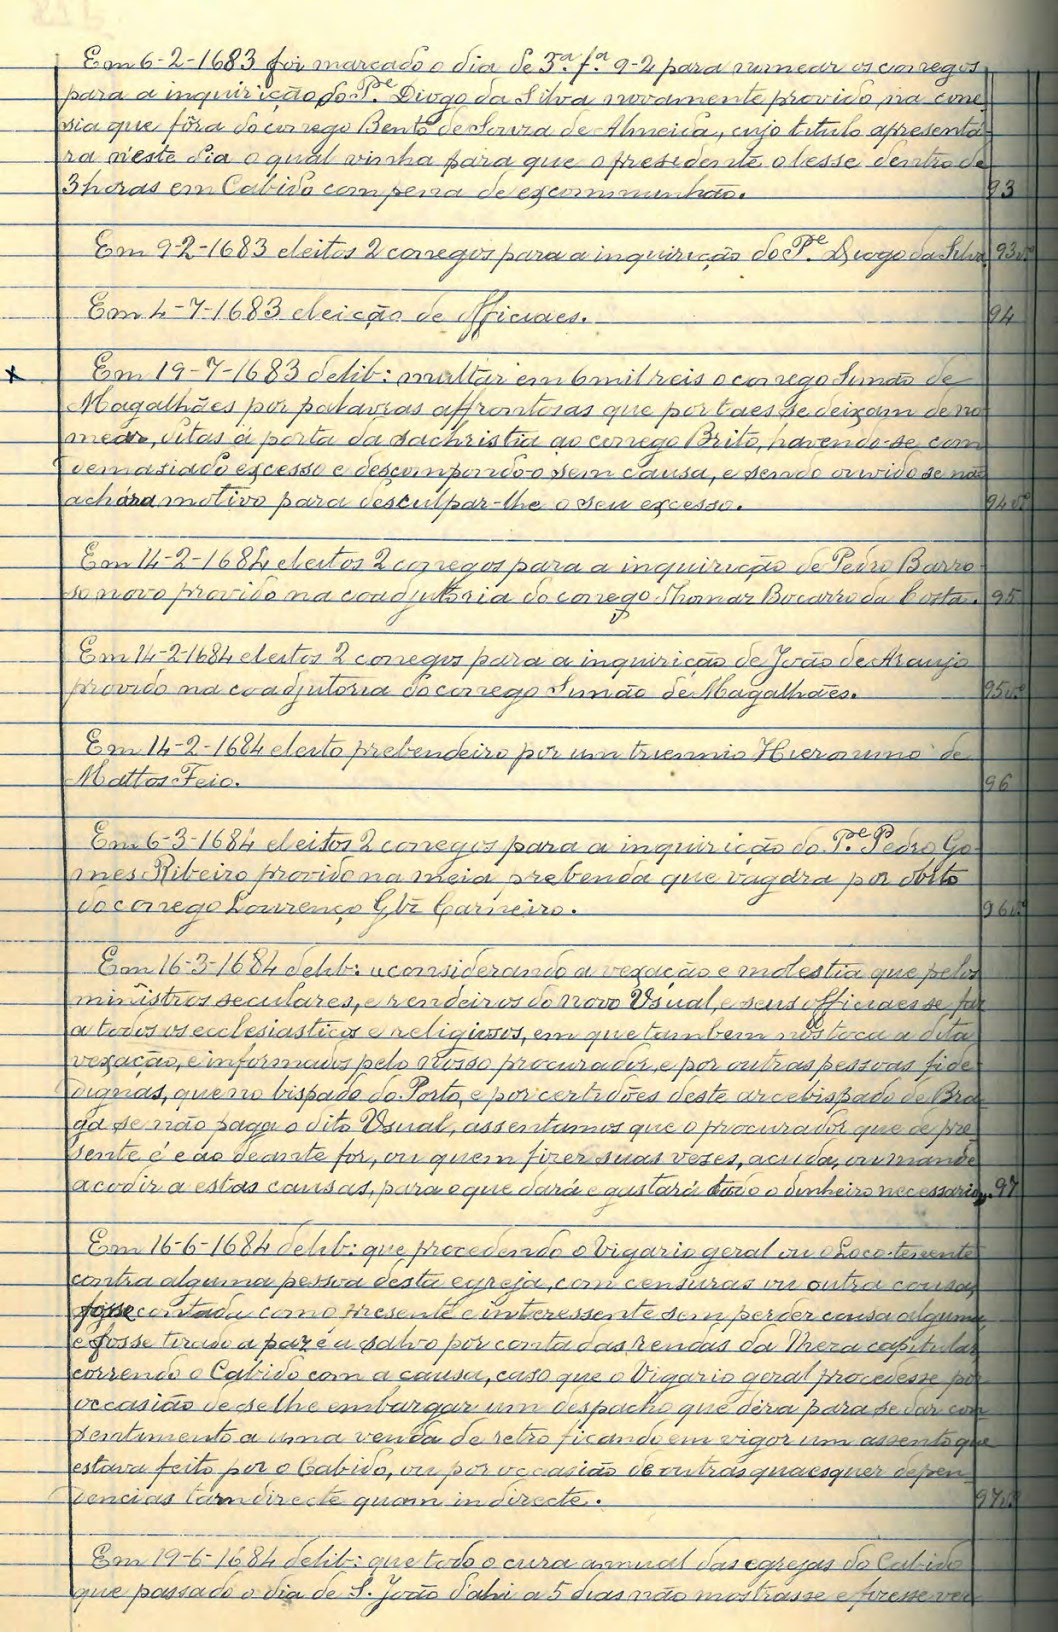 Em 6-2-1683 foi marcado o dia de 3ª fª 9-2 para numear os conegos
para a inquirição do Pe Diogo da Silva novamente provido na cone-
sia que fôra do conego Bento de Souza de Almeida, cujo titulo apresentá-
ra n'este dia o qual vinha para que o presidente o lesse dentro de
3 horas em Cabido com pena de excommunhão. 93
Em 9-2-1683 eleitos 2 conegos para a inquirição do Pe Diogo da Silva 93vº
Em 4-7-1683 eleição de officiaes. 94
x Em 19-7-1683 delib: multar em 6 mil reis o conego Simão de
Magalhães por palavras affrontosas que por taes se deixam de no-
mear, ditas á porta da sachristia ao conego Brito, havendo-se com
demasiado excesso e descompondo-o sem causa, e sendo ouvido se não
achára motivo para desculpar-lhe o seu excesso. 94vº
Em 14-2-1684 eleitos 2 conegos para a inquirição de Pedro Barro-
so novo provido na coadjutoria do conego Thomaz Bocarro da Costa. 95
Em 14-2-1684 eleitos 2 conegos para a inquirição de João de Araujo
provido na coadjutoria do conego Simão de Magalhães. 95vº
Em 14-2-1684 eleito prebendeiro por um triennio Hieronimo de
Mattos Feio. 96
Em 6-3-1684 eleitos 2 conegos para a inquirição do Pe Pedro Go-
mes Ribeiro provido na meia prebenda que vagára por obito
do conego Lourenço Glz Carneiro. 96vº
Em 16-3-1684 delib: "considerando a vexação e molestia que pelos
ministros seculares, e rendeiros do novo Usual, e seus officiaes se faz
a todos os ecclesiasticos e religiosos, em que tambem nos toca a dita
vexação, e informados pelo nosso procurador, e por outras pessoas fide-
dignas, que no bispado do Porto, e por certidões deste arcebispado de Bra-
ga se não paga o dito Usual, assentamos que o procurador que de pre-
sente é e ao deante for, ou quem fizer suas vezes, acuda, ou mande
acodir a estas causas, para o que dará e gastará todo o dinheiro necessario". 97
Em 16-6-1684 delib: que procedendo o Vigario geral ou o Loco-tenente
contra alguma pessoa desta egreja, com censuras ou outra cousa,
fosse contada como presente e interessente sem perder cousa alguma,
e fosse tirado a paz e a salvo por conta das rendas da Meza capitular,
correndo o Cabido com a causa, caso que o Vigario geral procedesse por
occasião de se lhe embargar um despacho que déra para se dar con-
sentimento a uma venda de retro ficando em vigor um assento que
estava feito por o Cabido, ou por occasião de outras quaesquer depen-
dencias tam directe quam indirecte. 97vº
Em 19-6-1684 delib: que todo o cura annual das egrejas do Cabido
que passado o dia de S. João d'ahi a 5 dias não mostrasse e fizesse ver